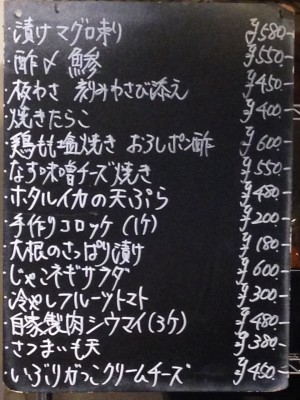 ・漬けマグロ刺り ¥580-
・酢〆鯵 ¥550-
・板わさ 刻みわさび添え ¥450-
・焼きたらこ ¥400-
・鶏もも塩焼き おろしポン酢 ¥600-
・なす味噌チーズ焼き ¥550-
・ホタルイカの天ぷら ¥480-
・手作りコロッケ(1ケ) ¥200-
・大根のさっぱり漬け ¥180-
・じゃこネギサラダ ¥600-
・冷やしフルーツトマト ¥300-
・自家製肉シウマイ(3ケ) ¥480-
・さつまいも天 ¥380-
・いぶりがっこクリームチーズ ¥450-